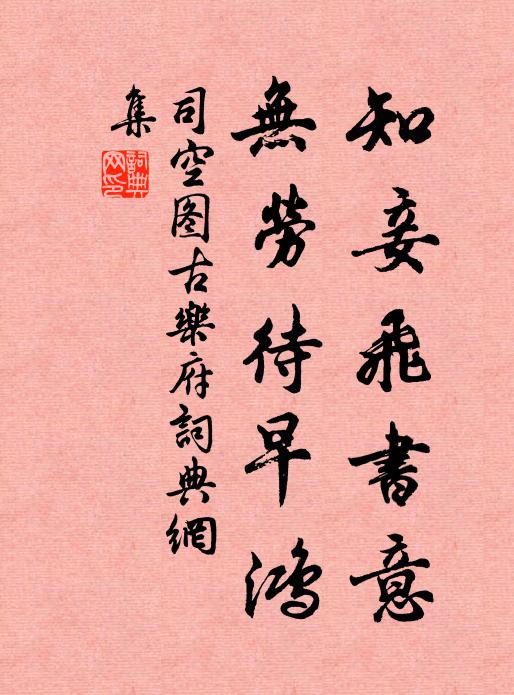 知妾飛書意
無勞待早鴻
司空图古樂府詞典網
集
詞典網印